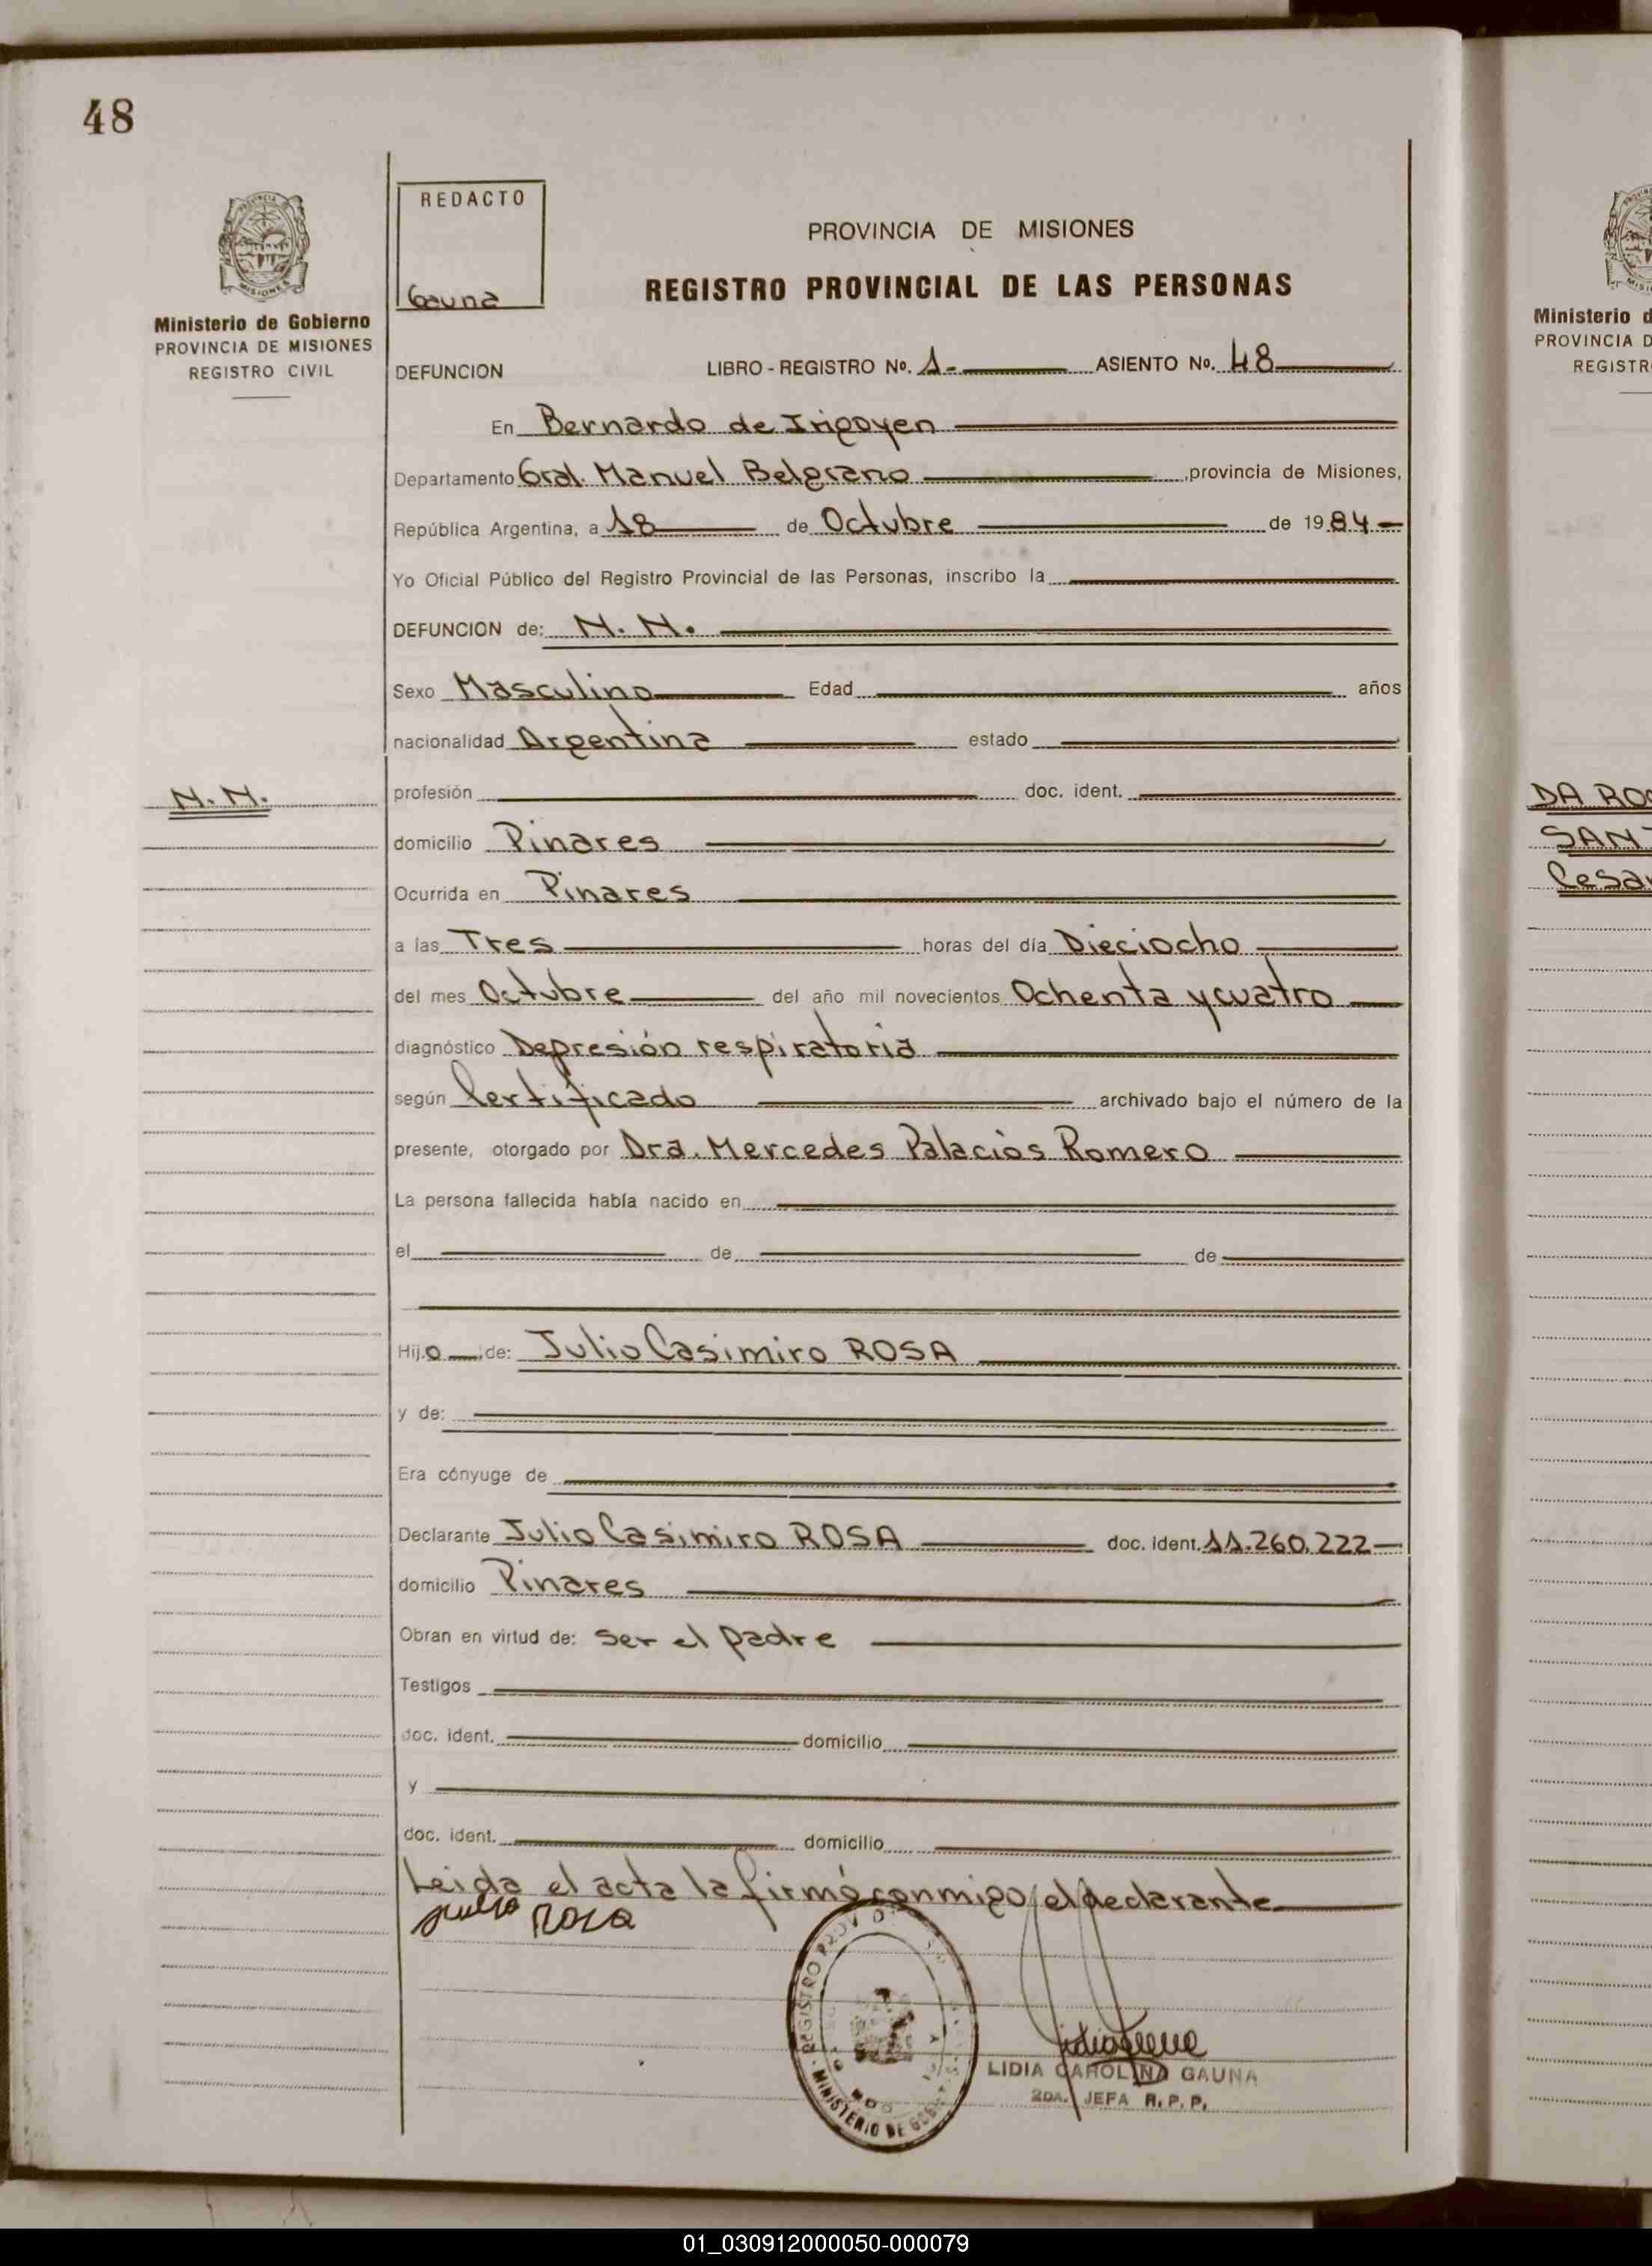 48
PROVINCIA
MISIONES
Ministerio de Gobierno
PROVINCIA DE MISIONES
REGISTRO CIVIL
REDACTO
Gauna
PROVINCIA DE MISIONES
REGISTRO PROVINCIAL DE LAS PERSONAS
DEFUNCION LIBRO - REGISTRO No. 1- ASIENTO No. 48
En Bernardo de Irigoyen
Departamento Gral. Manuel Belgrano, provincia de Misiones,
República Argentina, a 18 de Octubre de 1984-
Yo Oficial Público del Registro Provincial de las Personas, inscribo la
DEFUNCION de: N. N.
Sexo Masculino Edad años
nacionalidad Argentina estado
N. N.
profesión doc. ident.
domicilio Pinares
Ocurrida en Pinares
a las Tres horas del día Dieciocho
del mes Octubre del año mil novecientos Ochenta y cuatro
diagnóstico Depresión respiratoria
según Certificado archivado bajo el número de la
presente, otorgado por Dra. Mercedes Palacios Romero
La persona fallecida había nacido en
el de de
Hijo de: Julio Casimiro ROSA
y de:
Era cónyuge de
Declarante Julio Casimiro ROSA doc. ident. 11.260.222-
domicilio Pinares
Obran en virtud de: ser el padre
Testigos
doc. ident. domicilio
y
doc. ident. domicilio
Leida el acta la firmó conmigo el declarante
Julio Rosa
REGISTRO PROV
MINISTERIO DE
LIDIA CAROLINA GAUNA
2DA. JEFA R.P.P.
Ministerio d
PROVINCIA D
REGISTR
DA ROS
SANT
Cesar
01_030912000050-000079